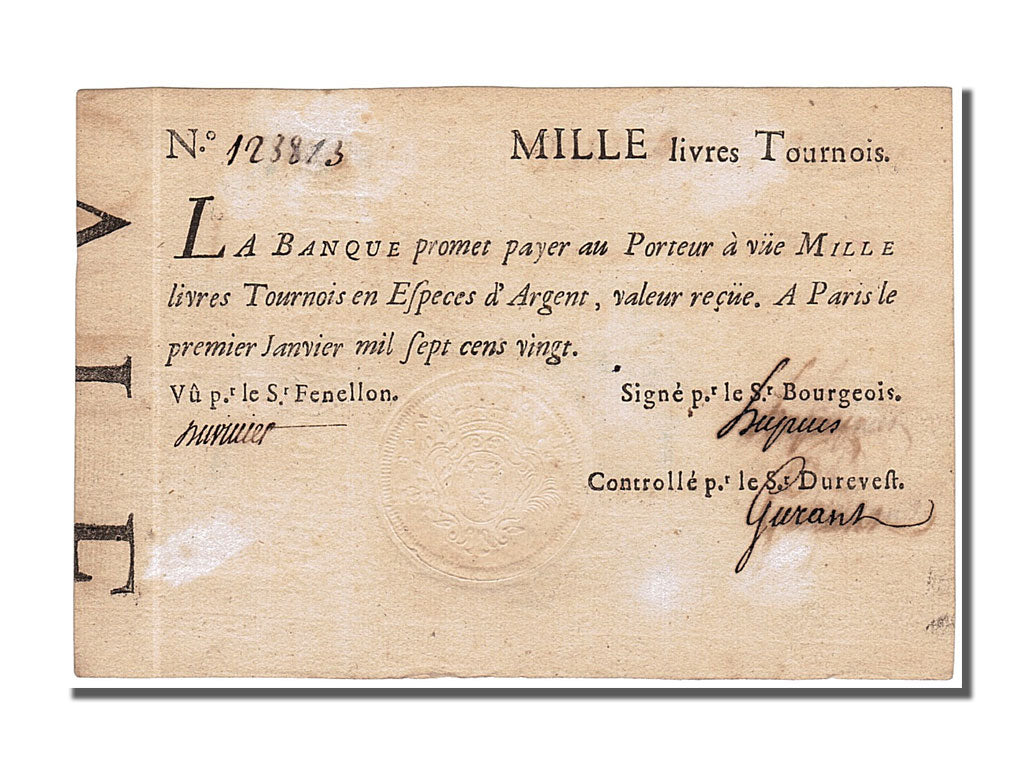 N.º 123813
MILLE livres Tournois.
LA BANQUE promet payer au Porteur à vüe MILLE
livres Tournois en Eſpeces d'Argent, valeur reçüe. A Paris le
premier Janvier mil ſept cens vingt.
Vû p.r le S.r Fenellon.
Signé p.r le S.r Bourgeois.
Controllé p.r le S.r Dureveſt.
Gurant